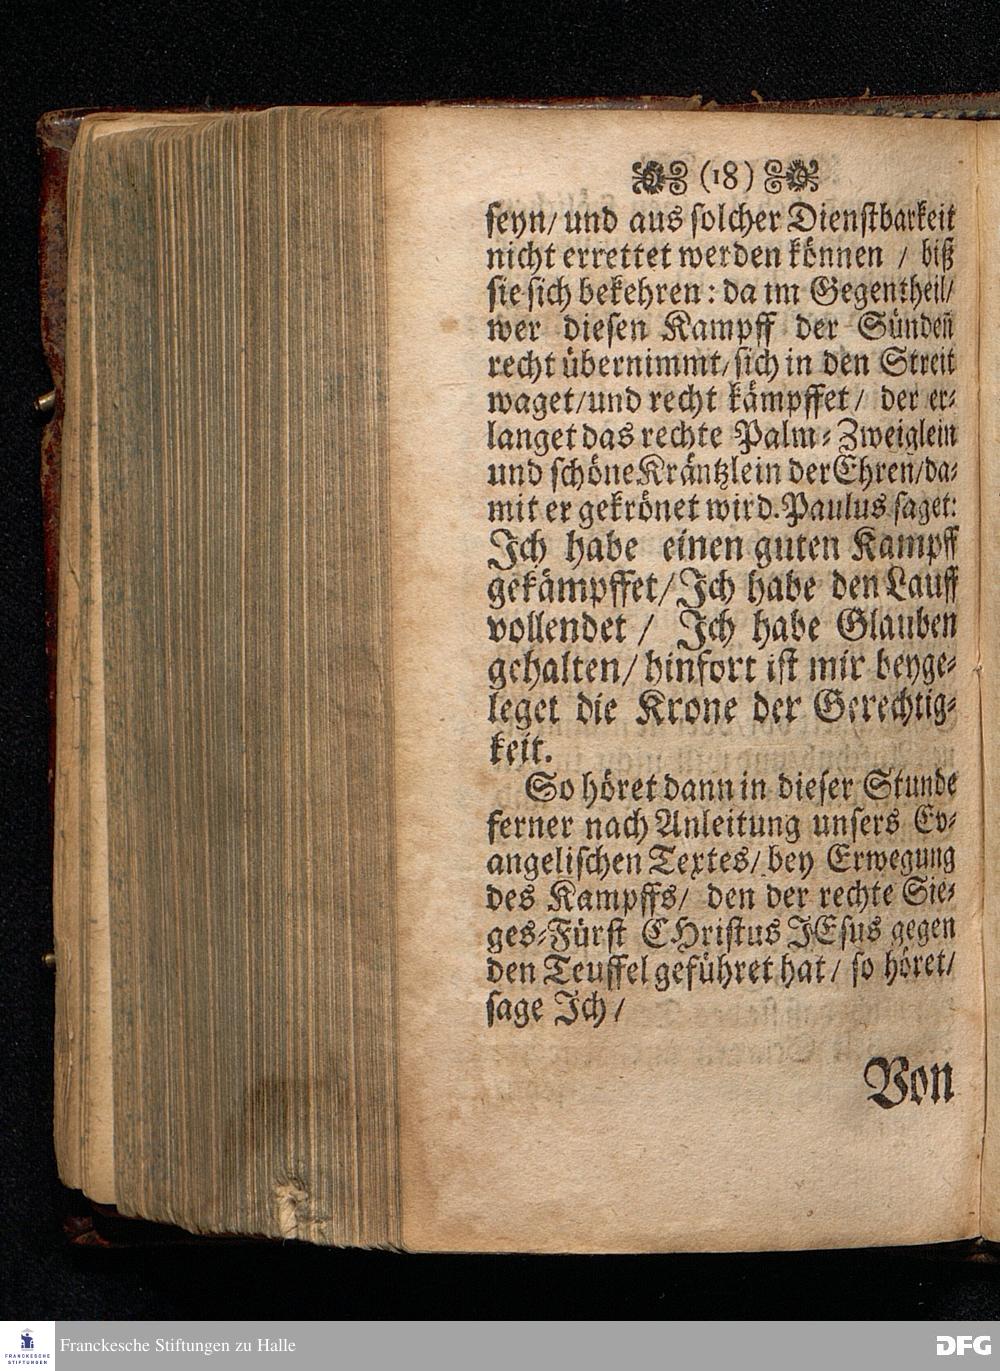 (18)
seyn/ und aus solcher Dienstbarkeit
nicht errettet werden können / biß
sie sich bekehren: da im Gegentheil/
wer diesen Kampff der Sünden̄
recht übernimmt/ sich in den Streit
waget/ und recht kämpffet/ der er-
langet das rechte Palm-Zweiglein
und schöne Kräntzlein der Ehren/ da-
mit er gekrönet wird. Paulus saget:
Ich habe einen guten Kampff
gekämpffet/ Ich habe den Lauff
vollendet / Ich habe Glauben
gehalten/ hinfort ist mir beyge-
leget die Krone der Gerechtig-
keit.
So höret dann in dieser Stunde
ferner nach Anleitung unsers Ev-
angelischen Textes/ bey Erwegung
des Kampffs/ den der rechte Sie-
ges-Fürst CHristus JEsus gegen
den Teuffel geführet hat/ so höret/
sage Ich/
Von
FRANCKESCHE
STIFTUNGEN
Franckesche Stiftungen zu Halle
DFG